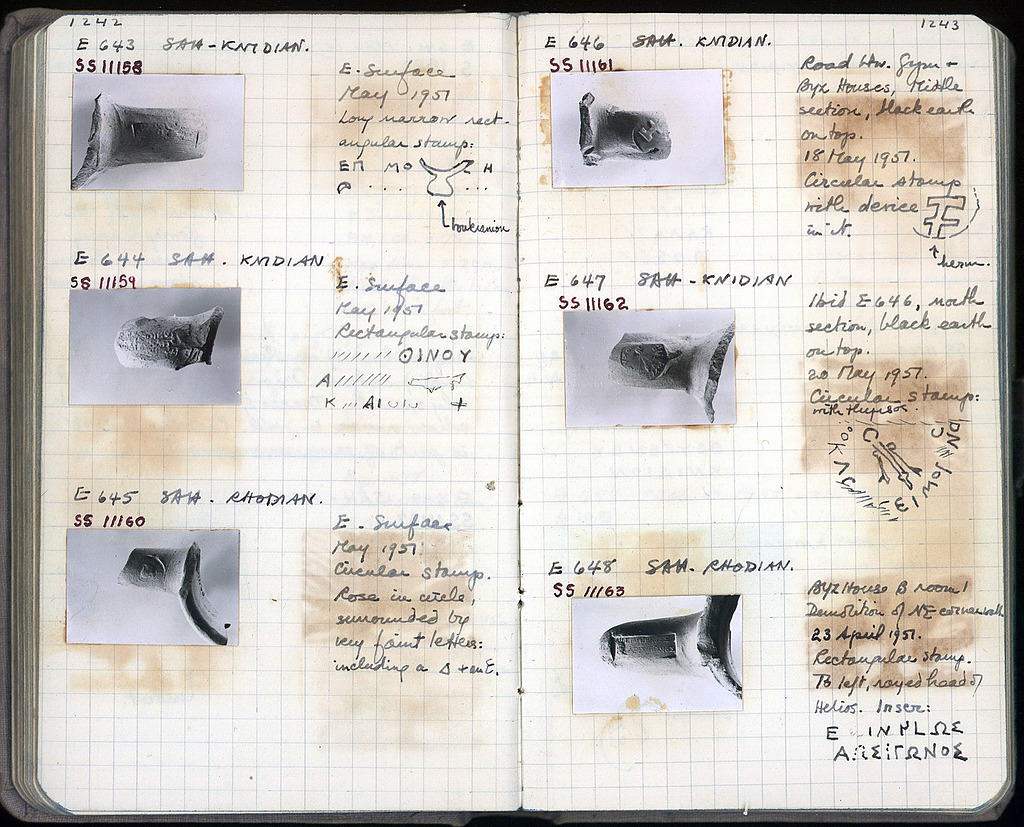 1242
E 643 SAH - KNIDIAN.
SS 11158
E. Surface
May 1951
Long narrow rect-
angular stamp:
ΕΠ ΜΟ Η
. . . . . .
boukranion
E 644 SAH. KNIDIAN
SS 11159
E. Surface
May 1951
Rectangular stamp:
ΟΙΝΟΥ
Α
Κ ΑΙ
E 645 SAH - RHODIAN.
SS 11160
E. Surface
May 1951.
Circular stamp.
Rose in circle,
surrounded by
very faint letters:
including a Δ + an E.
1243
E 646 SAH. KNIDIAN.
SS 11161
Road btw. Gym +
Byz Houses, Middle
section, black earth
on top.
18 May 1951.
Circular stamp
with device
in it.
herm.
E 647 SAH - KNIDIAN
SS 11162
Ibid E 646, north
section, black earth
on top.
20 May 1951.
Circular stamp:
with thyrsos.
E 648 SAH. RHODIAN.
SS 11163
Byz House B room 1
Demolition of NE corner wall
23 April 1951.
Rectangular stamp.
To left, rayed head of
Helios. Inscr: